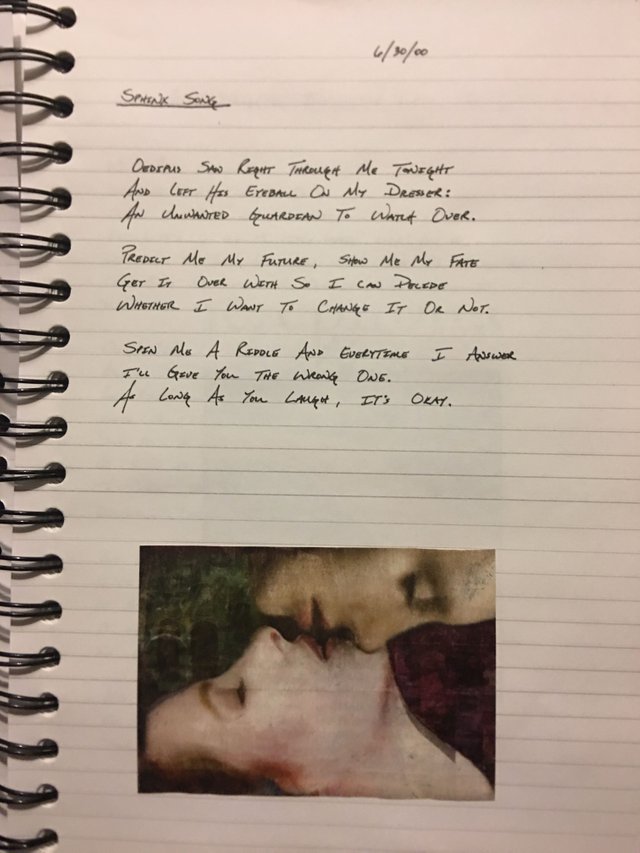 6/30/00
SPHINX SONG
OEDIPUS SAW RIGHT THROUGH ME TONIGHT
AND LEFT HIS EYEBALL ON MY DRESSER:
AN UNWANTED GUARDIAN TO WATCH OVER.
PREDICT ME MY FUTURE, SHOW ME MY FATE
GET IT OVER WITH SO I CAN DECIDE
WHETHER I WANT TO CHANGE IT OR NOT.
SPIN ME A RIDDLE AND EVERYTIME I ANSWER
I'LL GIVE YOU THE WRONG ONE.
AS LONG AS YOU LAUGH, IT'S OKAY.